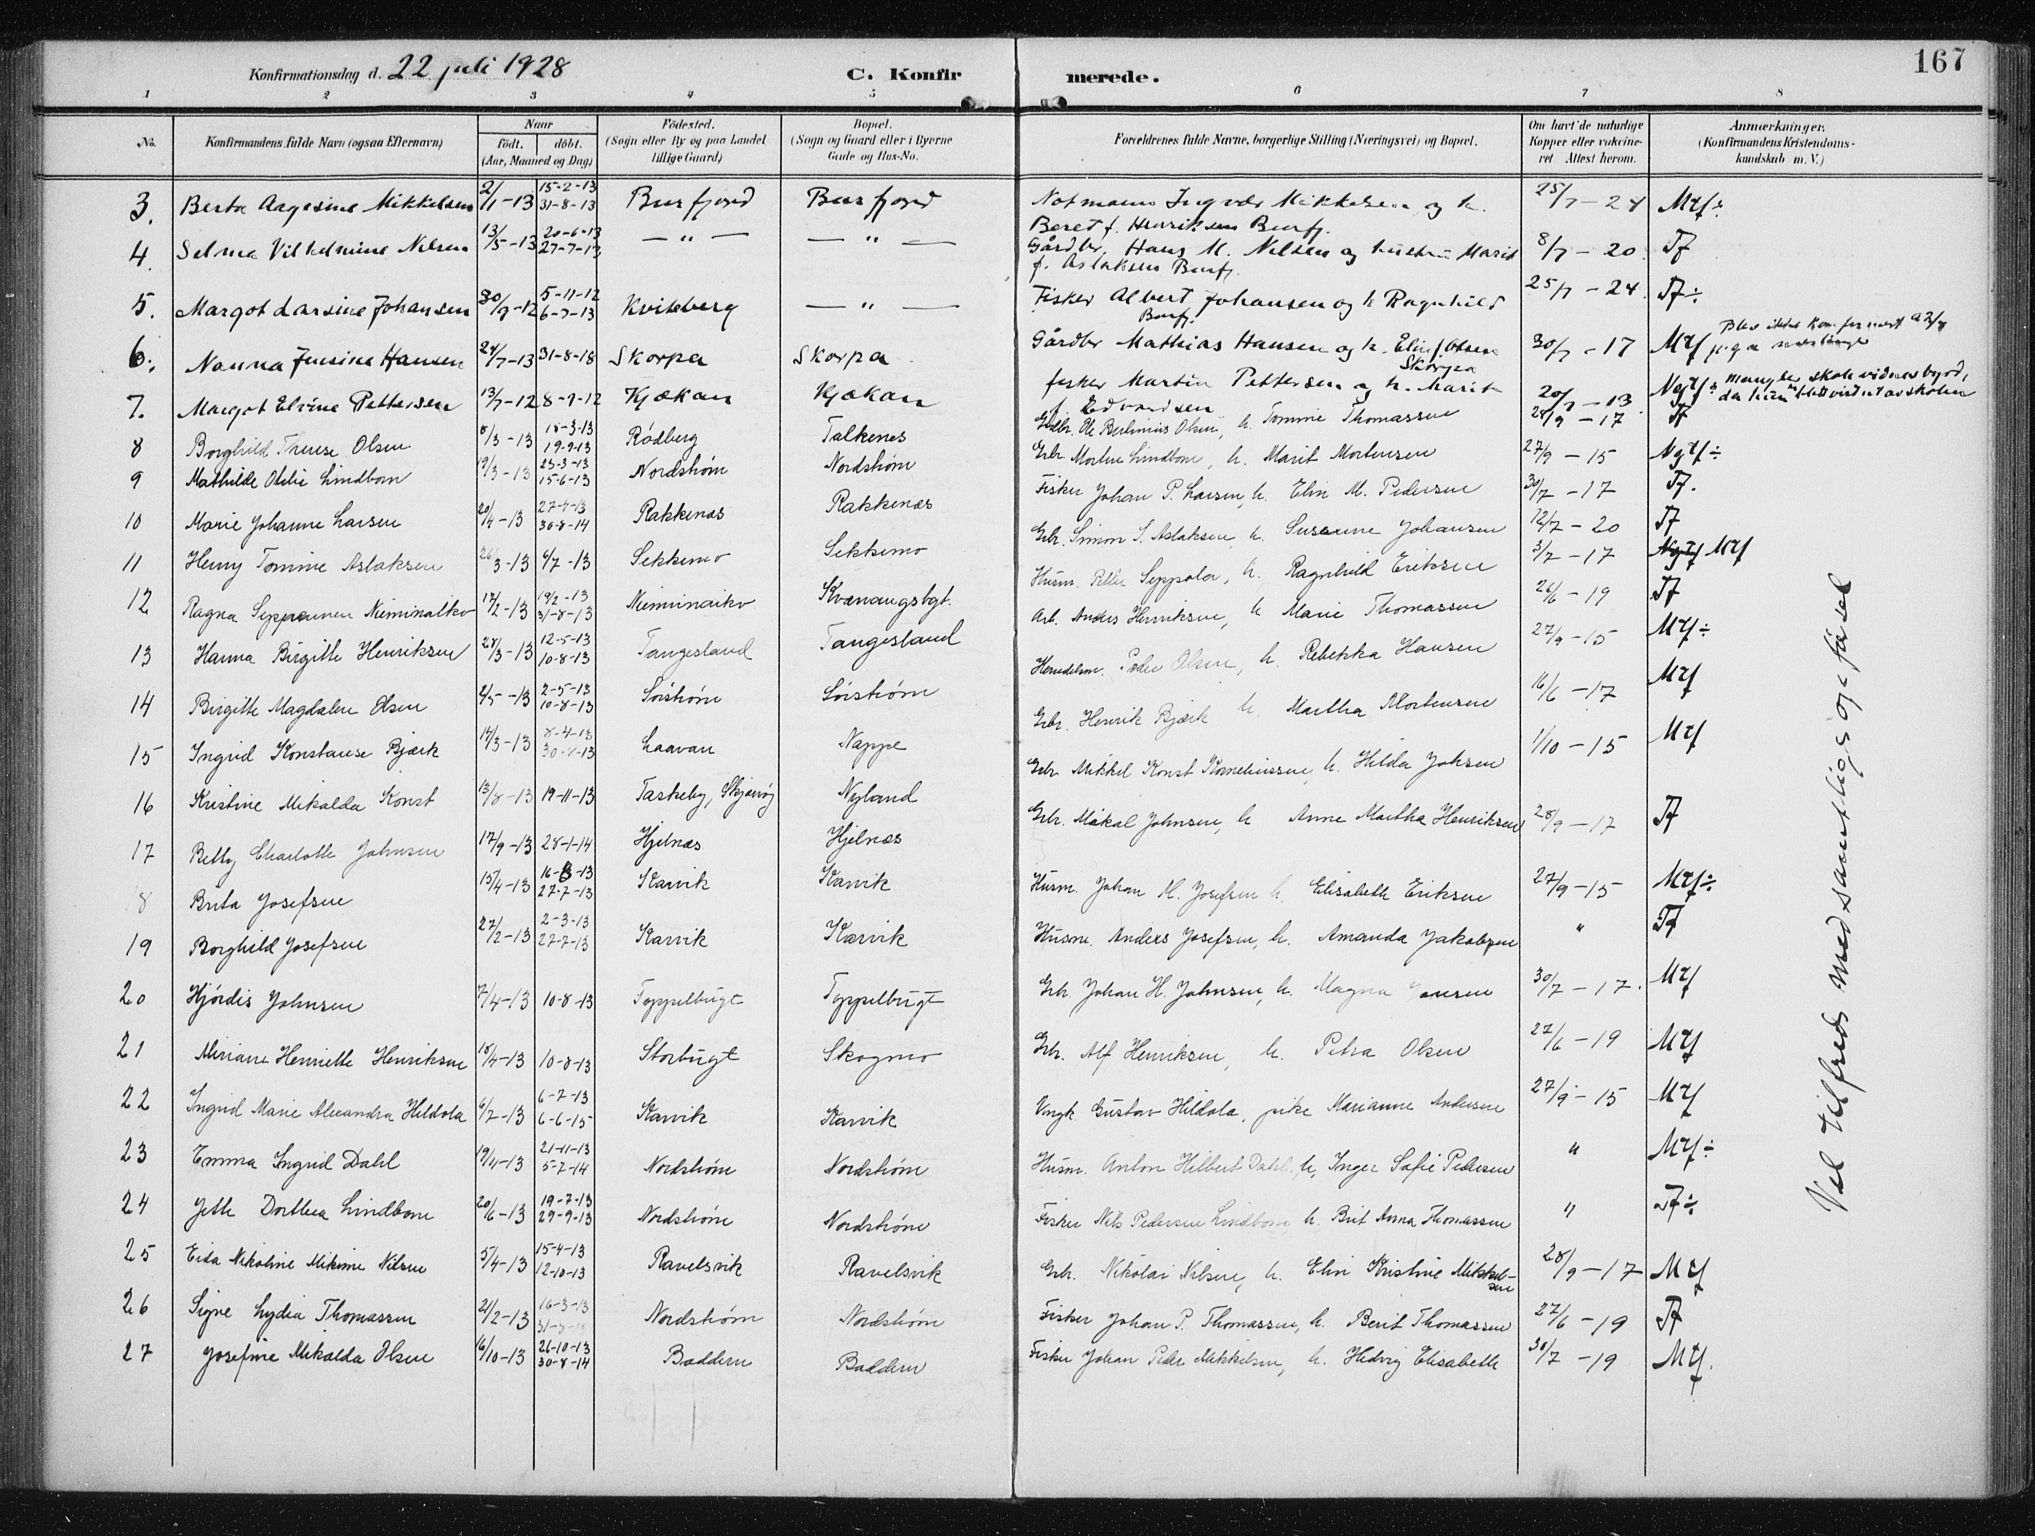 167
Konfirmationsdag d. 22 juli 1928 C. Konfirmerede.
1 2 3 4 5 6 7 8
No. Konfirmandens fulde Navn (ogsaa Efternavn) Naar født. døbt. (Aar, Maaned og Dag) Fødested. (Sogn eller By og paa Landet tillige Gaard) Bopæl. (Sogn og Gaard eller i Byerne Gade og Hus-No. Forældrenes fulde Navne, borgerlige Stilling (Næringsvei) og Bopæl. Om havt de naturlige Kopper eller vaksineret Attest herom. Anmærkninger. (Konfirmandens Kristendomskundskab m. V.)
3. Berta Aagesine Mikkelsen 2/1-13 15-2-13 31-8-13 Burfjord Burfjord Notmann Ingvar Mikkelsen og h. Beret f. Henriksen Burfj. 25/7-24 Mtf÷
4. Selma Vilhelmine Nilsen 13/5-13 20-6-13 27-7-13 — " — — " — Gårdbr. Hans M. Nilsen og hustru Marit f. Aslaksen Burfj. 8/7-20 Tf
5. Margot Larsine Johansen 30/9-12 5-11-12 6-7-13 Kviteberg — " — Fisker Albert Johansen og h Ragnhild Burfj. 25/7-24. Tf÷
6. Nanna Jensine Hansen 24/7-13 31-8-18 Skorpa Skorpa Gårdbr Mathias Hansen og h. Elin f. Olsen Skorpa 30/7-17 Mtf Blev ikke konfirmert 22/7 p.g.a.
7. Margot Elvine Pettersen 13/7-12 8-9-12 Kjækan Kjækan fisker Martin Pettersen og h. Marit f. Edvardsen 20/7-13 Ngtf÷ mangler skolevidnesbyrd,
8 Borghild Therese Olsen 8/3-13 18-3-13 19-9-13 Rødberg Talkenes Gdbr. Ole Berlinius Olsen, h. Tomine Thomassen 28/9-17 Tf
9 Mathilde Otilie Lindbom 19/3-13 23-3-13 15-6-13 Nordstrøm Nordstrøm Gbr Morten Lindbom, h. Marit Mortensen 27/9-15 Ngtf÷
10 Marie Johanne Larsen 20/4-13 27-4-13 30-8-14 Rakkenæs Rakkenæs Fisker Johan P. Larsen, h. Elin M. Pedersen 30/7-17 Tf.
11 Henny Tomine Aslaksen 26/3-13 6/7-13 Sekkemo Sekkemo Gbr. Simon S. Aslaksen, h. Susanne Johansen 12/7-20 Tf
12 Ragna Seppanen Nieminaiko 17/2-13 19/2-13 31-8-13 Nieminaiko Kvænangsbgt. Husm. Petter Seppola, h. Ragnhild Eriksen 3/7-17 Ngtf Mtf
13 Hanna Birgitte Henriksen 28/3-13 12-5-13 10-8-13 Tangesland Tangesland Arb. Anders Henriksen, h Marie Thomassen 26/6-19 Tf
14 Birgitte Magdalene Olsen 2/5-13 2-5-13 10-8-13 Sørstrøm Sørstrøm Peder Olsen, h. Rebekka Hansen 27/9-15 Mtf÷
15 Ingrid Konstanse Bjærk 14/3-13 8-4-13 Laavan Nappe Gbr. Henrik Bjærk h. Martha Mortensen 16/6-17 Mtf
16 Kristine Mikalda Konst 13/8-13 19-11-13 Taskeby, Skjærvøy Nyland Gbr Mikkel Konst Korneliussen h. Hilda Johsen 1/10-15 Mtf
17 Betty Charlotte Johnsen 17/9-13 28-1-14 Hjelnæs Hjelnæs Gbr. Mikal Johnsen, h Anne Martha Henriksen 28/9-17 Tf
18 Brita Josefsen 15/4-13 27-7-13 Karvik Karvik Husm. Johan H. Josefsen h. Elisabeth Eriksen 27/9-15 Mtf÷
19 Borghild Josefsen 27/2-13 2-3-13 27-7-13 Karvik Karvik Husm. Anders Josefsen, h. Amanda Jakobsen " Tf
20 Hjørdis Johnsen 7/4-13 10-8-13 Toppelbugt Toppelbugt Gbr. Johan H. Johnsen, h. Magna Jensen 30/7-17. Mtf
21 Miriam Henriette Henriksen 18/4-13 10-8-13 Storbugt Skogmo Gbr. Alf Henriksen, h. Petra Olsen 27/6-19 Mtf
22 Ingrid Marie Alexandra Hildola 6/2-13 6-7-13 6-6-15 Karvik Karvik Ungk. Gustav Hildola, pike Marianne Andersen 27/9-15 Mtf
23 Emma Ingrid Dahl 19/11-13 21-11-13 5-7-14 Nordstrøm Nordstrøm Husm. Anton Hilbert Dahl, h, Inger Sofie Pedersen " Mtf÷
24 Jette Dorthea Lindbom 20/6-13 19-7-13 29-9-13 Nordstrøm Nordstrøm Fisker Nils Pedersen Lindbom h. Brit Anna Thomassen " Tf÷
25 Eida Nikoline Mikine Nilsen 5/4-13 15-4-13 12-10-13 Ravelsvik Ravelsvik Gbr. Nikolai Nilsen, h. Elin Kristine Mikkelsen 28/9-17 Mtf
26 Signe Lydia Thomassen 21/2-13 16-3-13 Nordstrøm Nordstrøm Fisker Johan P. Thomassen, h. Berit Thomassen 27/6-19 Tf
27 Josefine Mikalda Olsen 16/10-13 26-10-13 30-8-14 Baddern Baddern Fisker Johan Peder Mikkelsen, h. Hedvig Elisabeth 30/7-19 Mtf.
Vel tilfreds med samtlige